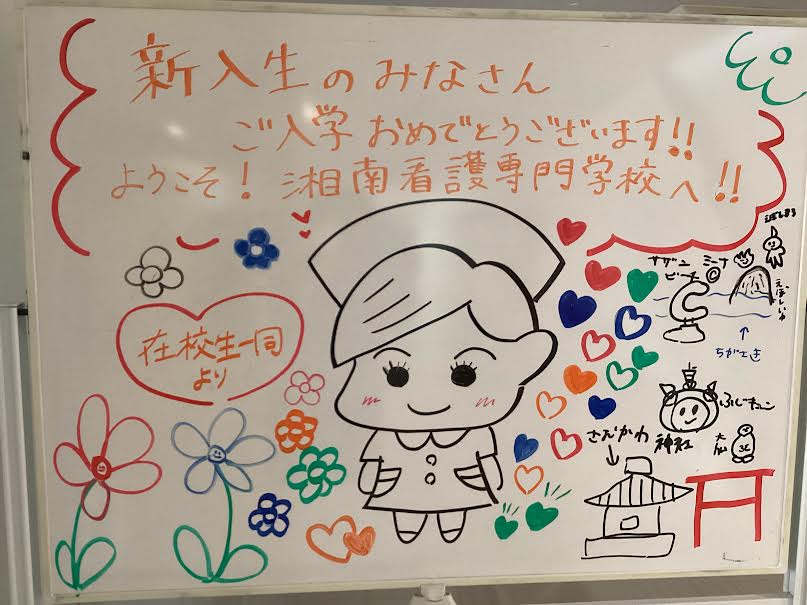 新入生のみなさん
ご入学おめでとうございます!!
ようこそ! 湘南看護専門学校へ!!
在校生一同
より
えぼし麻呂
サザン
ビーチ
ミーナ
えぼしいわ
ちがさき
ふじキュン
さむかわ
神社
大仏